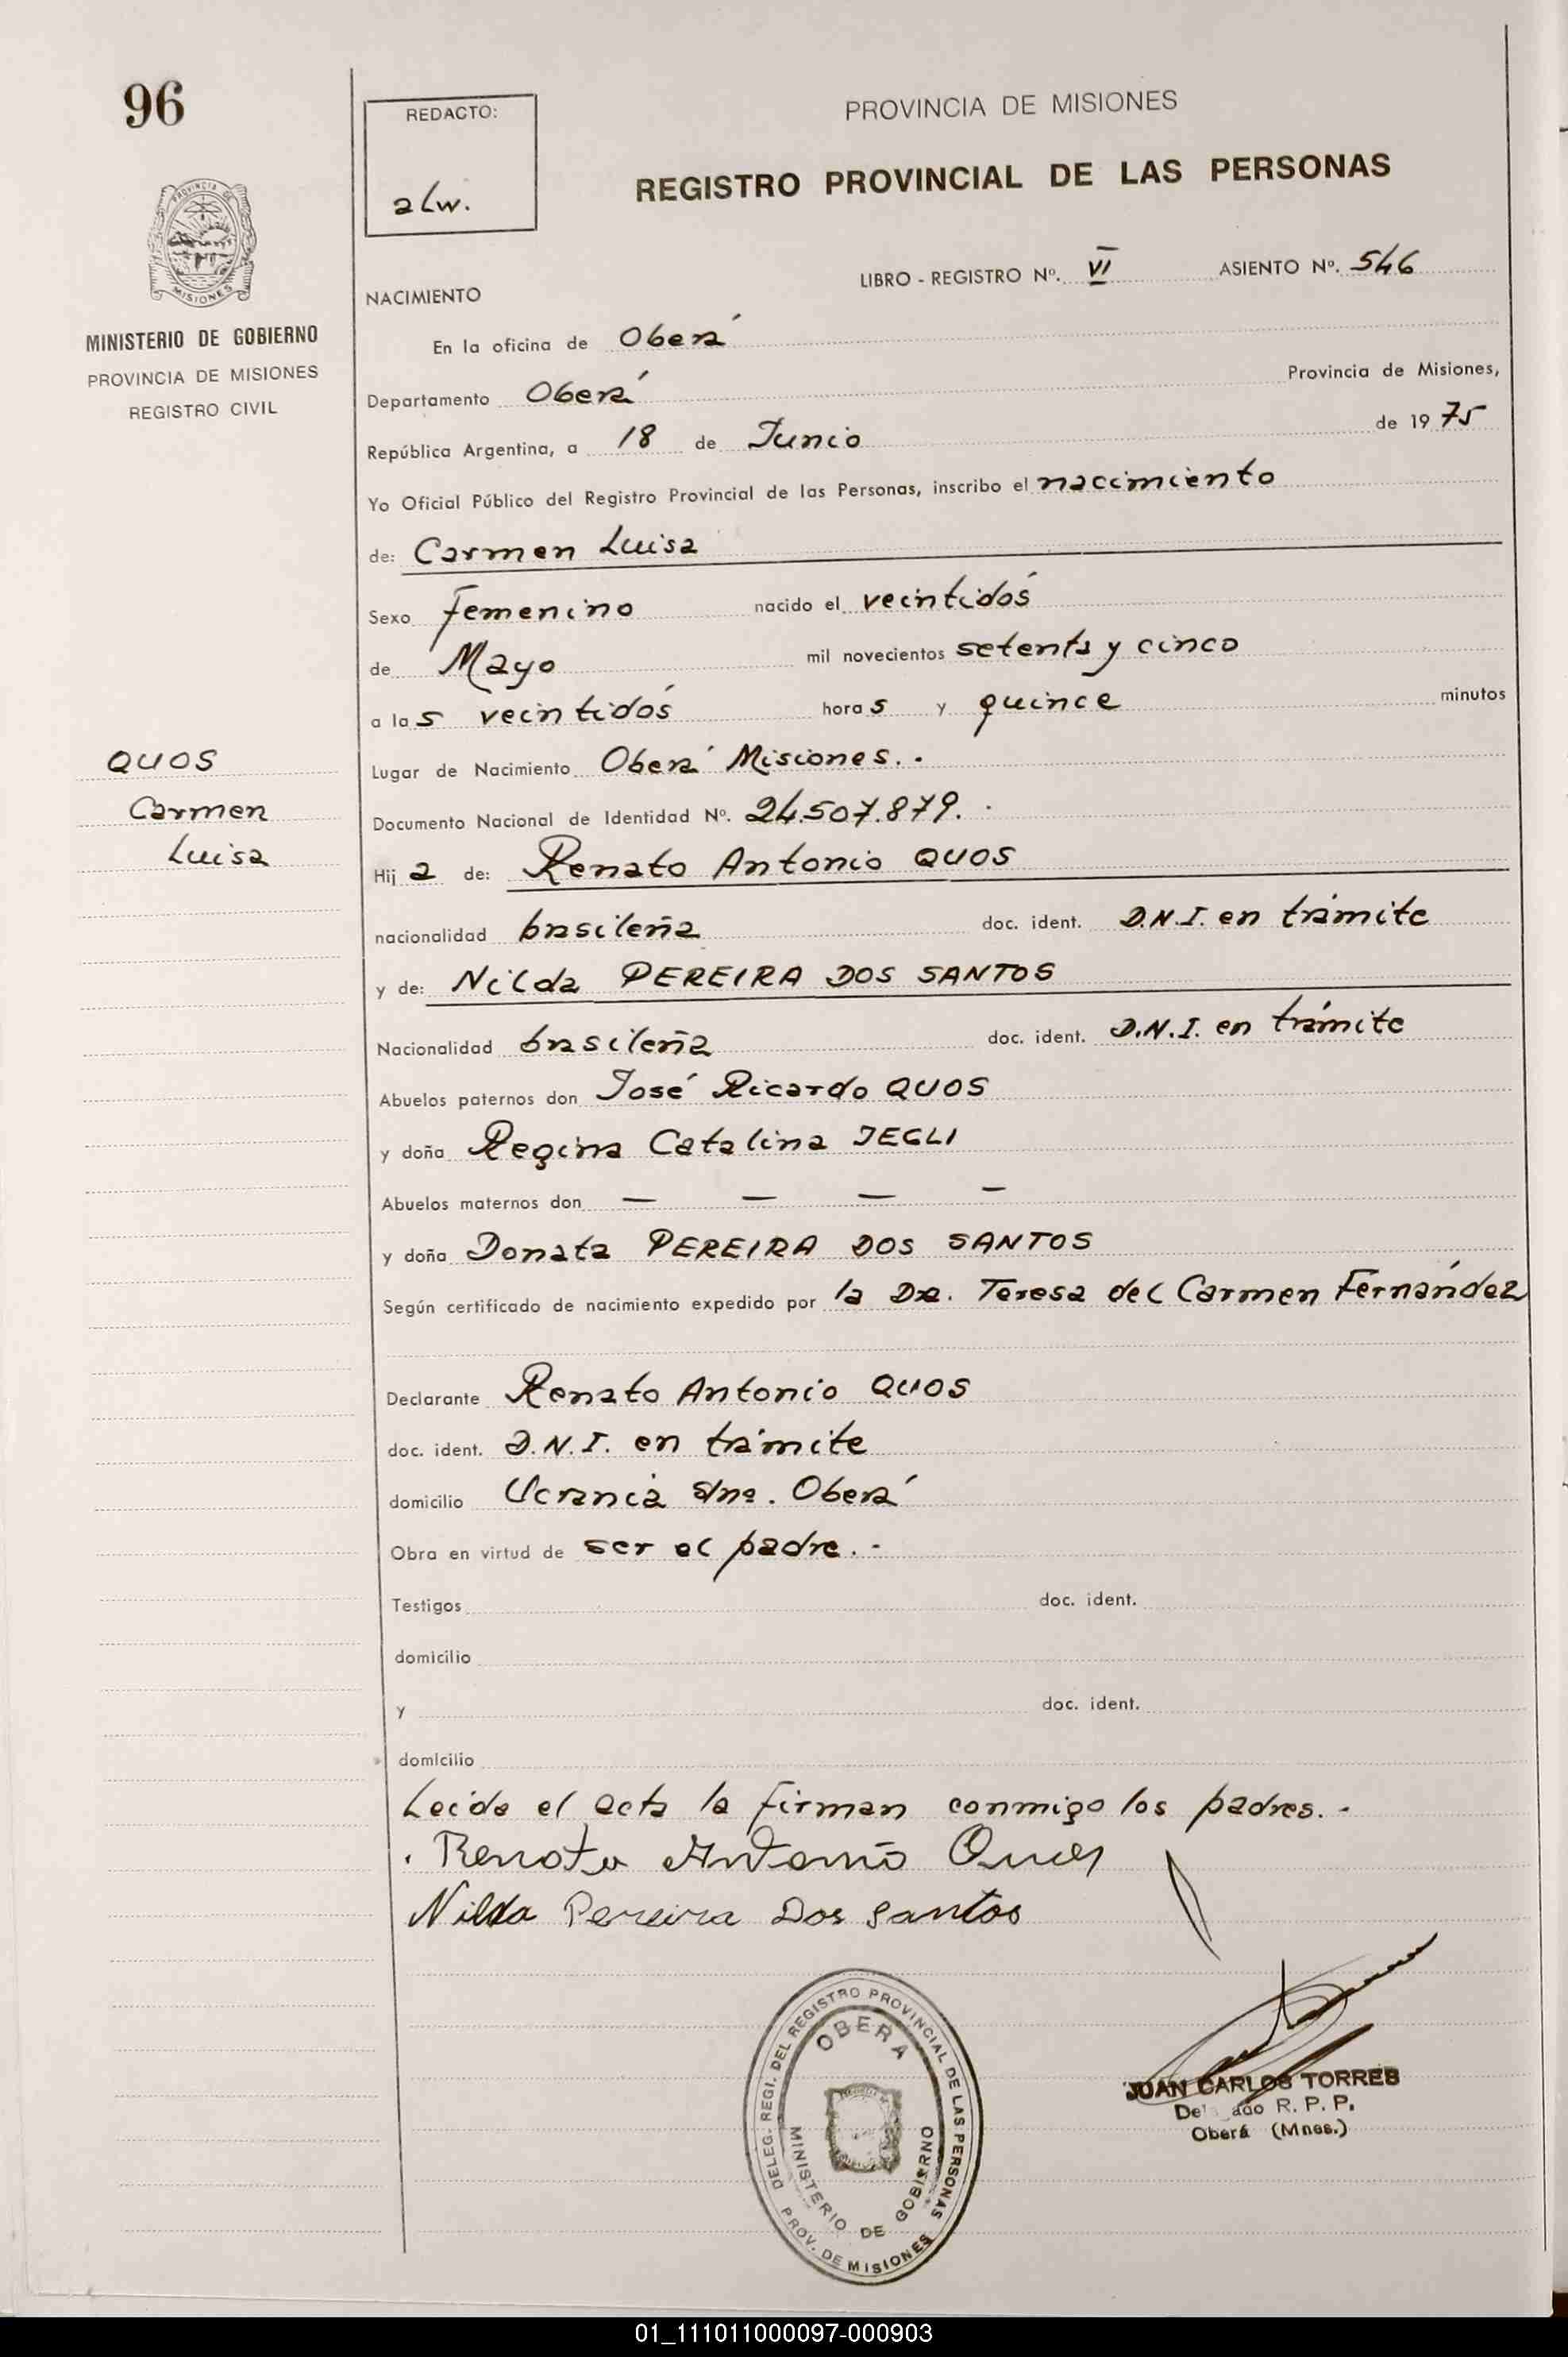 96
REDACTO:
alw.
PROVINCIA DE MISIONES
REGISTRO PROVINCIAL DE LAS PERSONAS
PROVINCIA DE
MISIONES
MINISTERIO DE GOBIERNO
PROVINCIA DE MISIONES
REGISTRO CIVIL
LIBRO - REGISTRO Nº. VI ASIENTO Nº. 546
NACIMIENTO
En la oficina de Oberá
Departamento Oberá Provincia de Misiones,
República Argentina, a 18 de Junio de 19 75
Yo Oficial Público del Registro Provincial de las Personas, inscribo el nacimiento
de: Carmen Luisa
Sexo femenino nacido el veintidós
de Mayo mil novecientos setenta y cinco
a las veintidós horas y quince minutos
QUOS
Carmen
Luisa
Lugar de Nacimiento Oberá Misiones. -
Documento Nacional de Identidad Nº. 24.507.879. -
Hija de: Renato Antonio QUOS
nacionalidad brasileña doc. ident. D.N.I. en trámite
y de: Nilda PEREIRA DOS SANTOS
Nacionalidad brasileña doc. ident. D.N.I. en trámite
Abuelos paternos don José Ricardo QUOS
y doña Regina Catalina JEGLI
Abuelos maternos don — — — —
y doña Donata PEREIRA DOS SANTOS
Según certificado de nacimiento expedido por la Dra. Teresa del Carmen Fernández
Declarante Renato Antonio QUOS
doc. ident. D.N.I. en trámite
domicilio Ucrania s/nº. Oberá
Obra en virtud de ser el padre. -
Testigos doc. ident.
domicilio
y doc. ident.
domicilio
Leida el acta la firman conmigo los padres. -
Renato Antonio Quos
Nilda Pereira Dos Santos
DELEG. REGI. DEL REGISTRO PROVINCIAL DE LAS PERSONAS
OBERA
MINISTERIO DE GOBIERNO
PROV. DE MISIONES
JUAN CARLOS TORRES
R. P. P.
Oberá (Mnes.)
01_111011000097-000903